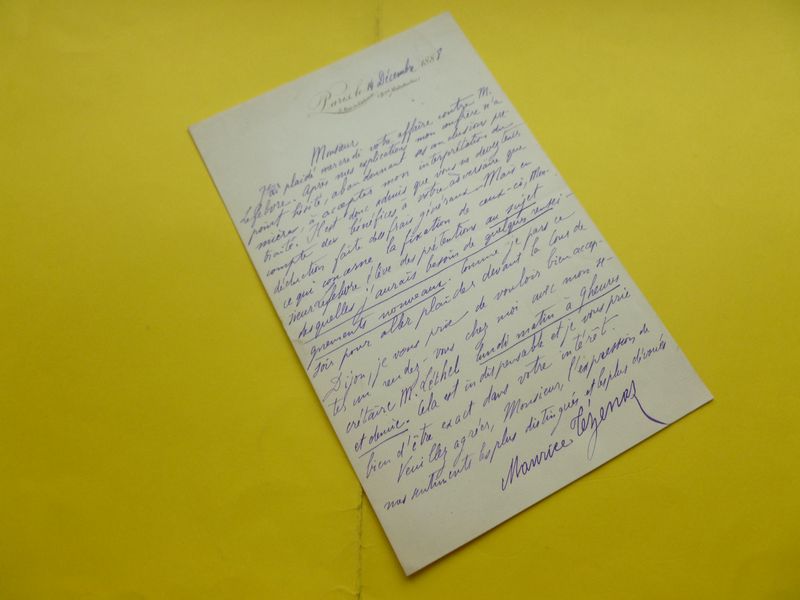 Paris le 14 Décembre 1888
Monsieur
J'ai plaidé mercredi votre affaire contre M.
Lefebvre. Après mes explications mon confrère n'a
point hésité, abandonnant ses conclusions pre
mières, à accepter mon interprétation du
traité. Il est donc admis que vous ne devez tenir
compte des bénéfices à votre adversaire que
déduction faite des frais généraux. Mais en
ce qui concerne la fixation de ceux-ci, Mon-
sieur Lefebvre élève des prétentions au sujet
desquelles j'aurais besoin de quelques rensei-
gnements nouveaux. Comme je pars ce
soir pour aller plaider devant la Cour de
Dijon, je vous prie de vouloir bien accep-
ter un rendez-vous chez moi avec mon se-
crétaire M. Lundi matin à 9 heures
et demie. Cela est indispensable et je vous prie
bien d'être exact dans votre intérêt.
Veuillez agréer, Monsieur, l'expression de
mes sentiments les plus distingués et les plus dévoués
Maurice Tézenas